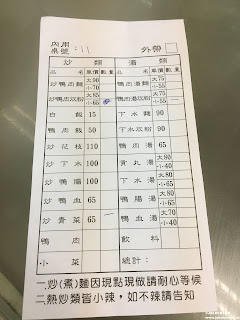 內用
桌號：11 外帶
炒類 湯類
品名 單價 數量 品名 單價 數量
炒鴨肉麵 大90 小70 鴨肉湯麵 大75 小55
炒鴨肉炊粉 大85 小65 鴨肉湯炊粉 大75 小55
白飯 15 下水麵 90
鴨肉飯 50 下水炊粉 90
炒花枝 110 骨丸湯 大80 小40
炒下水 100 下水湯 大80 小40
炒鴨腸 65 鴨腸湯 大80 小40
炒鴨血 65 鴨血湯 大70 小40
炒青菜 65
鴨肉 飲料
小菜 總計：
一.炒(煮)麵因現點現做請耐心等候
二.熱炒類皆小辣，如不辣請告知